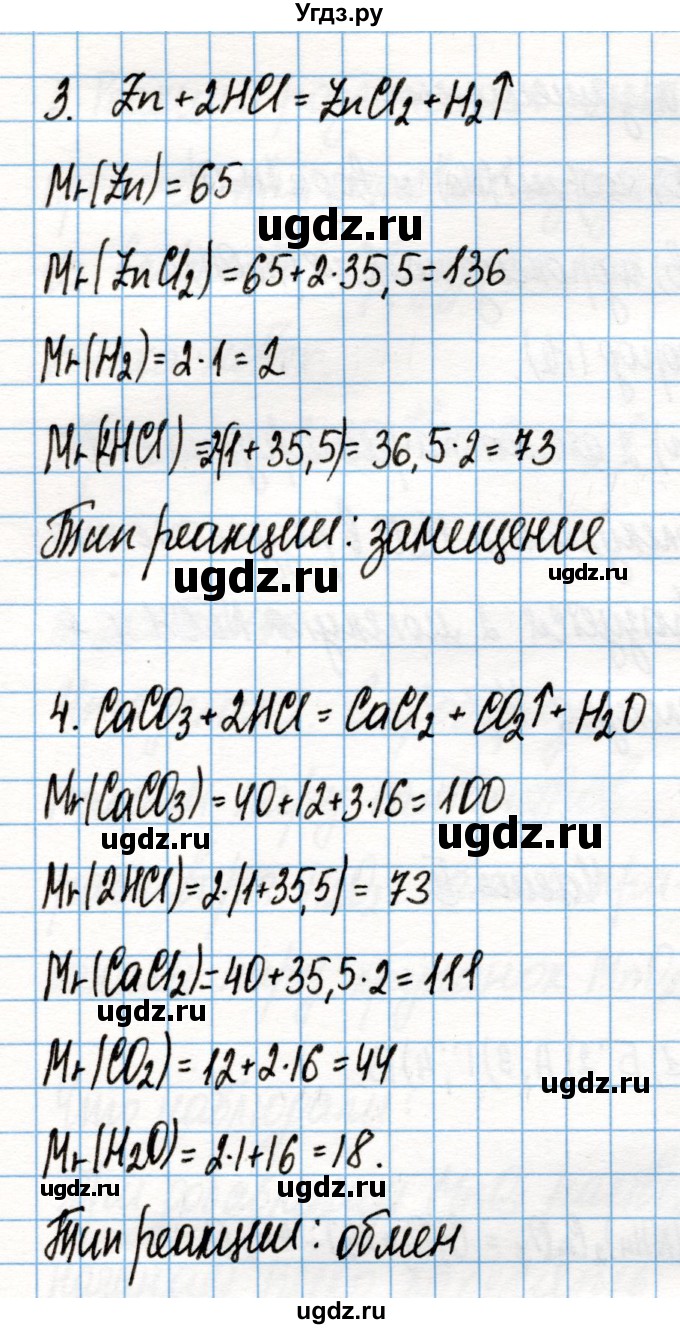 Угдз.ру
3. Zn + 2HCl = ZnCl₂ + H₂↑
Mr(Zn) = 65
ugdz.ru
Mr(ZnCl₂) = 65 + 2·35,5 = 136
Mr(H₂) = 2·1 = 2
Mr(2HCl) = 2(1 + 35,5) = 36,5·2 = 73
Тип реакции: замещение
ugdz.ru
ugdz.ru
4. CaCO₃ + 2HCl = CaCl₂ + CO₂↑ + H₂O
Mr(CaCO₃) = 40 + 12 + 3·16 = 100
ugdz.ru
ugdz.ru
Mr(2HCl) = 2·(1 + 35,5) = 73
Mr(CaCl₂) = 40 + 35,5·2 = 111
ugdz.ru
Mr(CO₂) = 12 + 2·16 = 44
ugdz.ru
Mr(H₂O) = 2·1 + 16 = 18.
ugdz.ru
ugdz.ru
Тип реакции: обмен
ugdz.ru